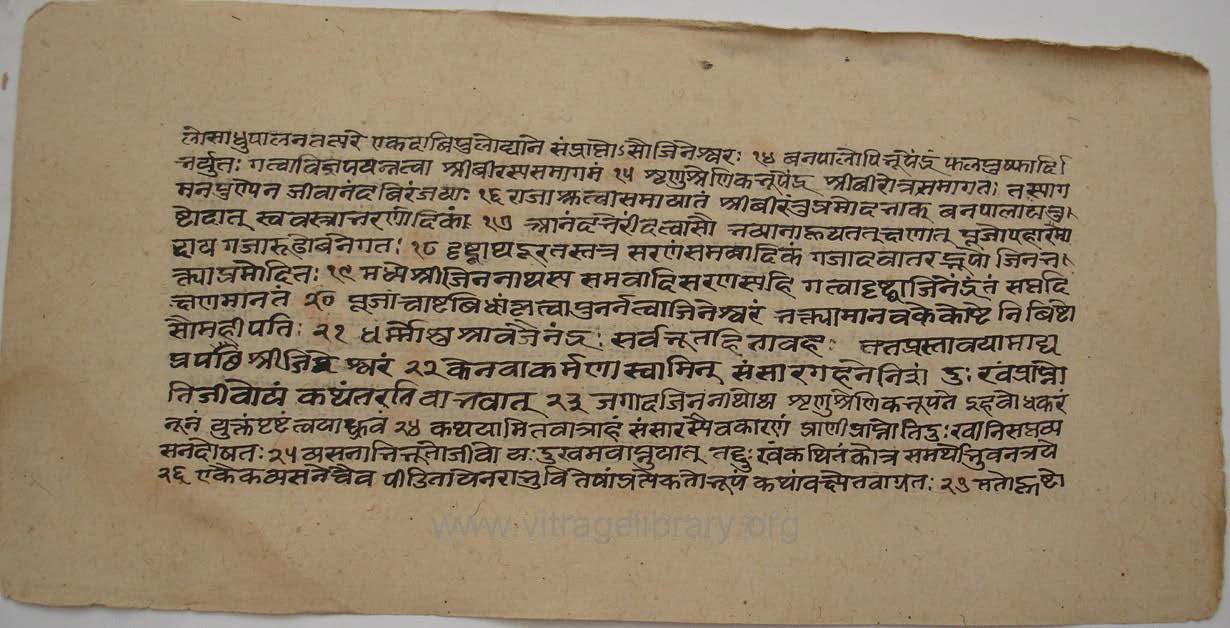 लोसाधुपालनतत्परे एकदाविपुलोद्याने संप्राप्तोऽसौजिनेश्वरः १४ वनपालोपिनृपेंद्रं फलपुष्पादि
गत्वाविज्ञपयन्नत्वा श्रीवीरस्यसमागमं १५ शृणुश्रेणिकनृपेंद्र श्रीवीरोत्रसमागतः तस्याग
मनपुण्येन जीवानंदविरंजयाः १६ राजाश्रुत्वासमायातं श्रीवीरंतुप्रमोदभाक् वनपालाय
ष्टोदात् स्ववस्त्राभरणादिकं १७ आनंदभेरीदत्वासौ पूजोपहारमा
दाय गजारूढोवनेगतः १८ दृष्ट्वाथदूरतस्तत्र सरणंसमवादिकं गजादवातरद्भूपो जिनभ
क्त्याप्रमोदितः १९ मध्येश्रीजिननाथस्य समवादिसरणस्यहि गत्वादृष्ट्वाजिनेंद्रंतं सप्रदि
क्षणमानतं २० पूजाचाष्टविधांकृत्वा पुनर्नत्वाजिनेश्वरं भक्त्यामानवककोष्टे निविष्टो
सौमहीपतिः २१ धर्मोस्तु श्रावजैनेंद्रः सर्वभूतहितावहः ततप्रस्तावयामाद्य
प्रपछै श्रीजिनेश्वरं २२ केनवाकर्मणास्वामिन् संसारगहनेनिशं दुःखंप्राप्नो
तिजीवोयं कथंतरतिवाभवात् २३ जगादजिननाथोथ शृणुश्रेणिकभूपते
नूनं युक्तंपृष्टंत्वयाध्रुवं २४ कथयामितवात्राहं संसारस्यैवकारणं प्राणीप्राप्नोतिदुःखानिसप्तव्य
सनदोषतः २५ व्यसनाभिभूतोजीवो यःदुखमवाप्नुयात् तद्दुःखंकथितंकोत्र समर्थोभुवनत्रये
२६ एकैकव्यसनेश्चैव पीडितायेनराभुवि तेषांप्रत्येकतोनूनं कथांवक्ष्येतवाग्रतः २७
www.vitragelibrary.org